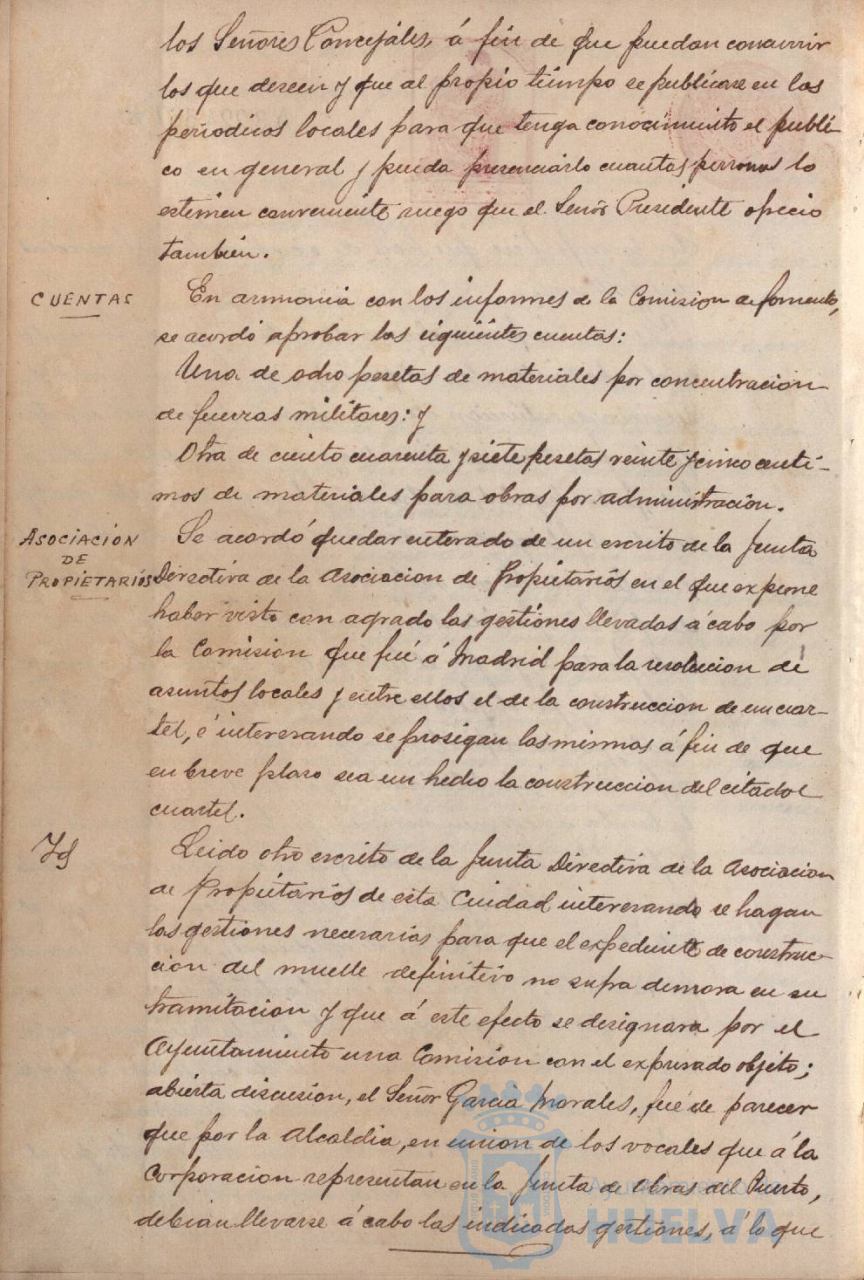 los Señores Concejáles, á fin de que puedan concurrir
los que deseen y que al propio tiempo se publicase en los
periodicos locales para que tenga conocimiento el públi-
co en general y pueda presenciarlo cuantas personas lo
estimen conveniente ruego que el Señor Presidente
tambien.
CUENTAS
En armonia con los informes de la Comision de fomento,
se acordó aprobar las siguientes cuentas:
Una de ocho pesetas de materiales por concentracion
de fuerzas militares: y
Otra de ciento cuarenta y siete pesetas veinte y cinco centi-
mos de materiales para obras por administracion.
ASOCIACIÓN
DE
PROPIETARIOS
Se acordó quedar enterado de un escrito de la Junta
Directiva de la Asociacion de Propietarios en el que expone
haber visto con agrado las gestiones llevadas á cabo por
la Comision que fué á Madrid para la resolucion de
asuntos locales y entre ellos el de la construccion de un cuar-
tel, é interesando se prosigan las mismas á fin de que
en breve plazo sea un hecho la construccion del citado
cuartel.
Id
Leido otro escrito de la Junta Directiva de la Asociacion
de Propietarios de esta Cuidad interesando se hagan
las gestiones necesarias para que el expediente de construc-
cion del muelle definitivo no sufra demora en su
tramitacion y que á este efecto se designara por el
Ayuntamiento una Comision con el expresado objeto;
abierta discusion, el Señor Garcia Morales, fué de parecer
que por la Alcaldia, en union de los vocales que á la
Corporacion representan en la Junta de Obras del Puerto,
debian llevarse á cabo las indicadas gestiones, á lo que
HUELVA